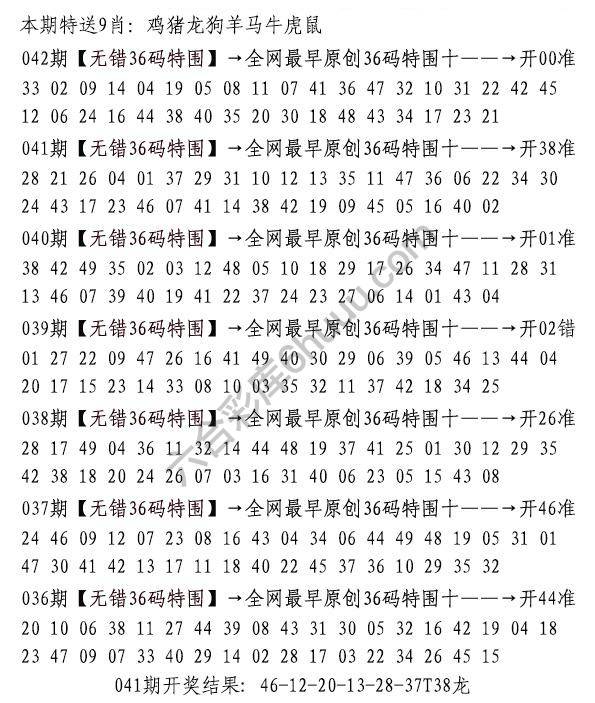 本期特送9肖: 鸡猪龙狗羊马牛虎鼠
042期【无错36码特围】→全网最早原创36码特围十——→开00准
33 02 09 14 04 19 05 08 11 07 41 36 47 32 10 31 22 42 45
12 06 24 16 44 38 40 35 20 30 18 48 43 34 17 23 21
041期【无错36码特围】→全网最早原创36码特围十——→开38准
28 21 26 04 01 37 29 31 10 12 13 35 11 47 36 06 22 34 30
24 43 17 23 46 07 41 14 38 42 19 09 45 05 16 40 02
040期【无错36码特围】→全网最早原创36码特围十——→开01准
38 42 49 35 02 03 12 48 05 10 18 29 17 26 34 47 11 28 31
13 46 07 39 40 19 41 22 37 24 23 27 06 14 01 43 04
039期【无错36码特围】→全网最早原创36码特围十——→开02错
01 27 22 09 47 26 16 41 49 40 30 29 06 39 05 46 13 44 04
20 17 15 23 14 33 08 10 03 35 32 11 37 42 18 34 25
038期【无错36码特围】→全网最早原创36码特围十——→开26准
28 17 49 04 36 11 32 14 44 48 19 37 41 25 01 30 12 29 35
42 38 18 20 24 26 07 03 16 31 40 06 23 05 15 43 08
037期【无错36码特围】→全网最早原创36码特围十——→开46准
24 46 09 12 07 23 08 16 43 04 34 06 44 49 48 19 05 31 01
47 30 41 42 13 17 11 18 40 22 45 37 36 10 29 35 32
036期【无错36码特围】→全网最早原创36码特围十——→开44准
20 10 06 38 11 27 44 39 08 43 31 30 05 32 16 42 19 04 18
23 47 09 07 33 40 29 14 02 28 17 03 22 34 26 45 15
041期开奖结果: 46-12-20-13-28-37T38龙